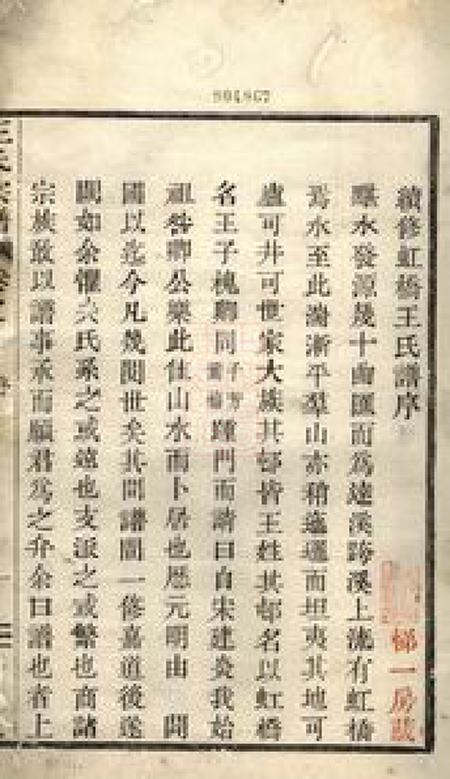 994867
續修虹橋王氏譜序
水發源幾十曲匯而為達溪跨溪上流有虹橋
焉水至此漪漸平羣山亦稍邐而坦夷其地可
廬可井可世家大族其邨皆王姓其邨名以虹橋
名王子槐卿同子方踵門而請曰自宋建炎我始
祖公樂此佳山水而卜居也歷元明由 間
國以迄今凡幾閱世矣其間譜間一修嘉道後遂
闕如余懼大氏系之或遠也支派之或繁也商諸
宗族敢以譜事承而願君為之弁余曰譜也者上
悌一房藏